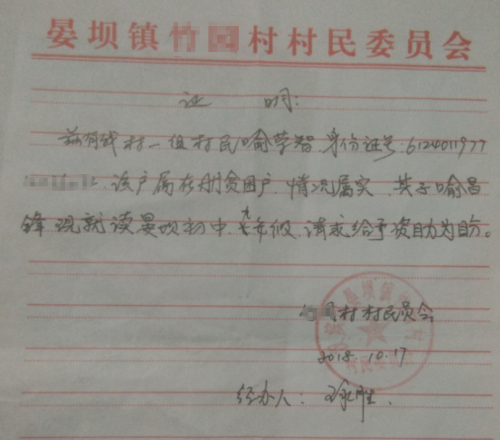 晏坝镇 村村民委员会
证 明:
兹有我村一组村民喻荣智 身份证号:6124011977
该户属在册贫困户,情况属实,其子喻昌
锋现就读晏坝初中,九年级,请求给予资助为盼。
村村民委员会
2018.10.17
经办人: